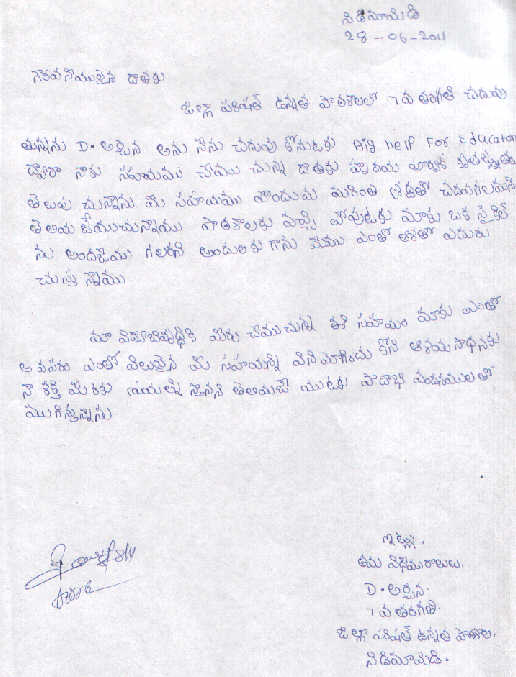 నిడిమామిడి
28-06-2011
గౌరవనీయులైన దాతకు
జిల్లా పరిషత్ ఉన్నత పాఠశాలలో 7వ తరగతి చదువు
తున్నాను D. అర్చన అను నేను చదువు కోనుటకు Help For Education
ద్వారా నాకు సహాయము చేయు చున్న దాతకు హృదయ పూర్వక కృతజ్ఞతలు
తెలుపు చున్నాను మీ సహాయము పొందుచు మరింత శ్రద్ధతో చదువగలనని
తెలియ జేయుచున్నాము పాఠశాలకు వెళ్ళి వచ్చుటకు మాకు ఒక సైకిల్
ను అందజేయు గలరని అందులకు గాను మేము ఎంతో ఆశతో ఎదురు
చూస్తున్నాము
మా విద్యాభివృద్ధికి మీరు చేయుచున్న ఈ సహాయం మాకు ఎంతో
అవసరం ఎంతో విలువైన మీ సహాయాన్ని వినియోగించు కోని ఆశయ సాధనకు
నా శక్తి మేరకు తెలియజే యుటకు పాదాభి వందనములతో
ముగిస్తున్నాను
ఇట్లు,
తమ విధేయురాలు,
D. అర్చన.
7వ తరగతి.
జిల్లా పరిషత్ ఉన్నత పాఠశాల.
నిడిమామిడి.